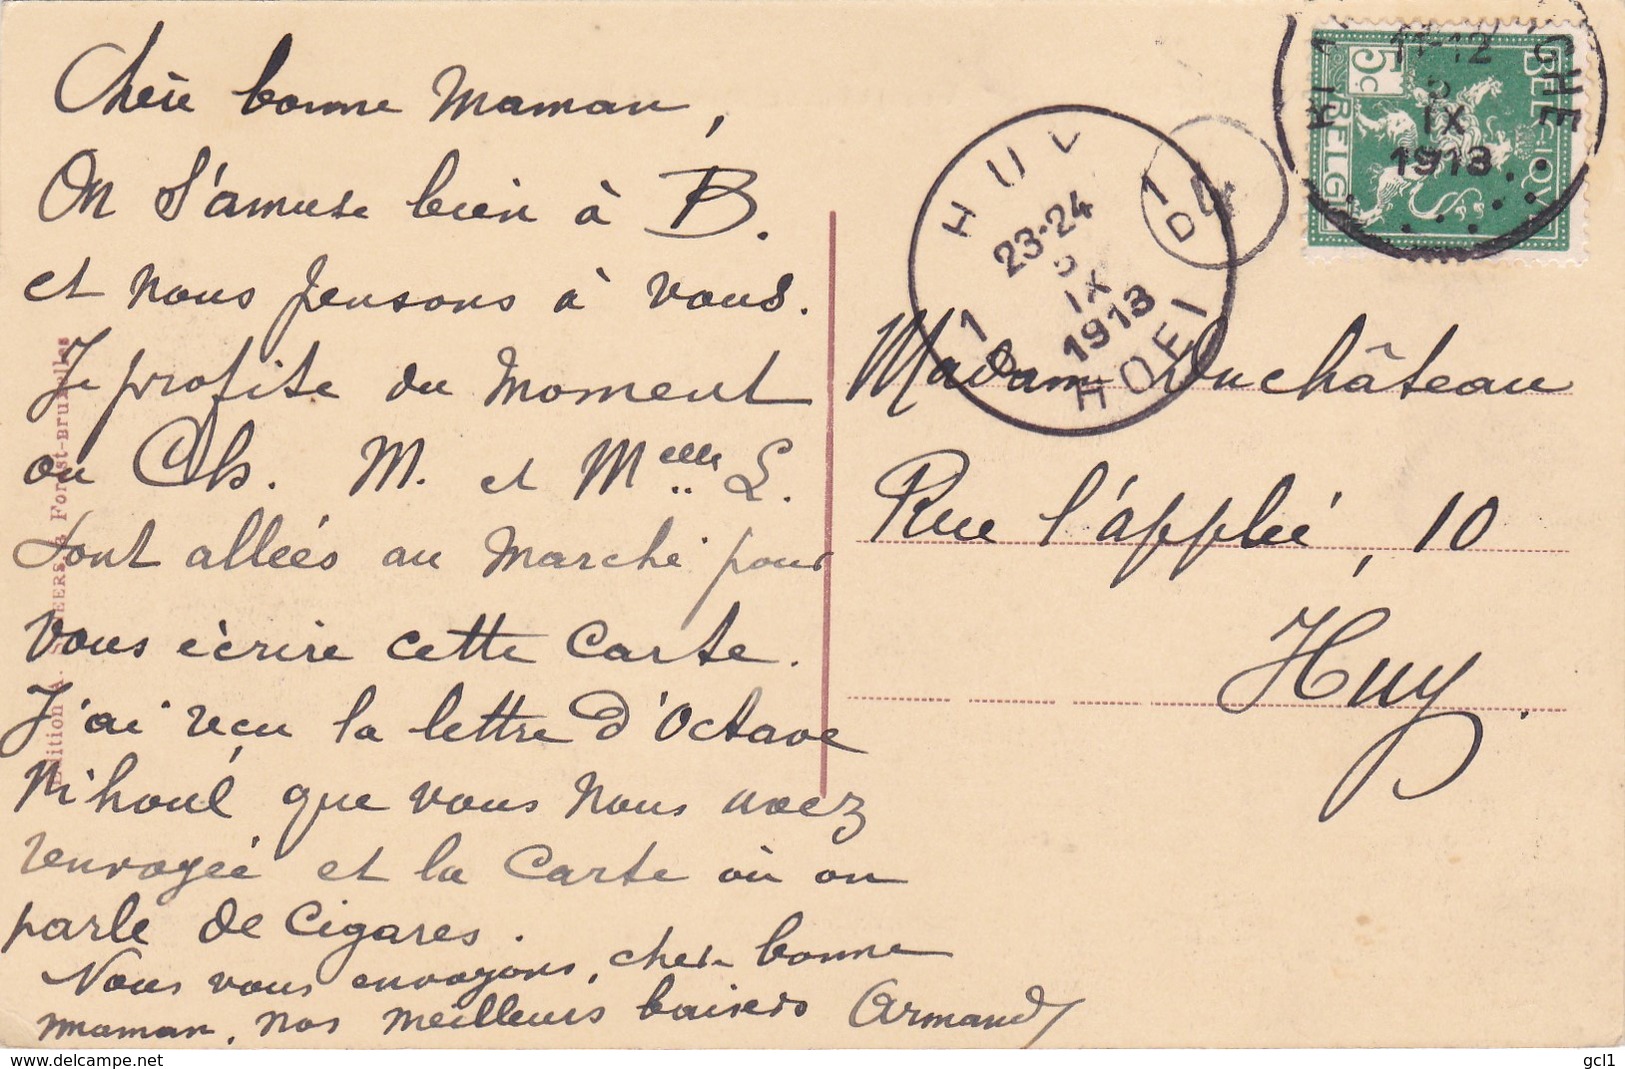 Chère bonne Maman,
On s'amuse bien à B.
et nous pensons à vous.
Je profite du moment
ou Ch. M. et Melle L.
sont allées au marché pour
vous écrire cette carte.
J'ai reçu la lettre d'Octave
Nihoul que vous nous avez
renvoyée et la carte où on
parle de cigares.
Nous vous envoyons, chère bonne
maman, nos meilleurs baisers Armand
Madame Duchâteau
Rue l'applée, 10
Huy.
HUY
1D
23-24
IX
1913
1D
HOEI
4
11-12
IX
1913
5c
BELGIQUE
BELGI
Edition A. à Forest-Bruxelles
delcampe.net
gcl1